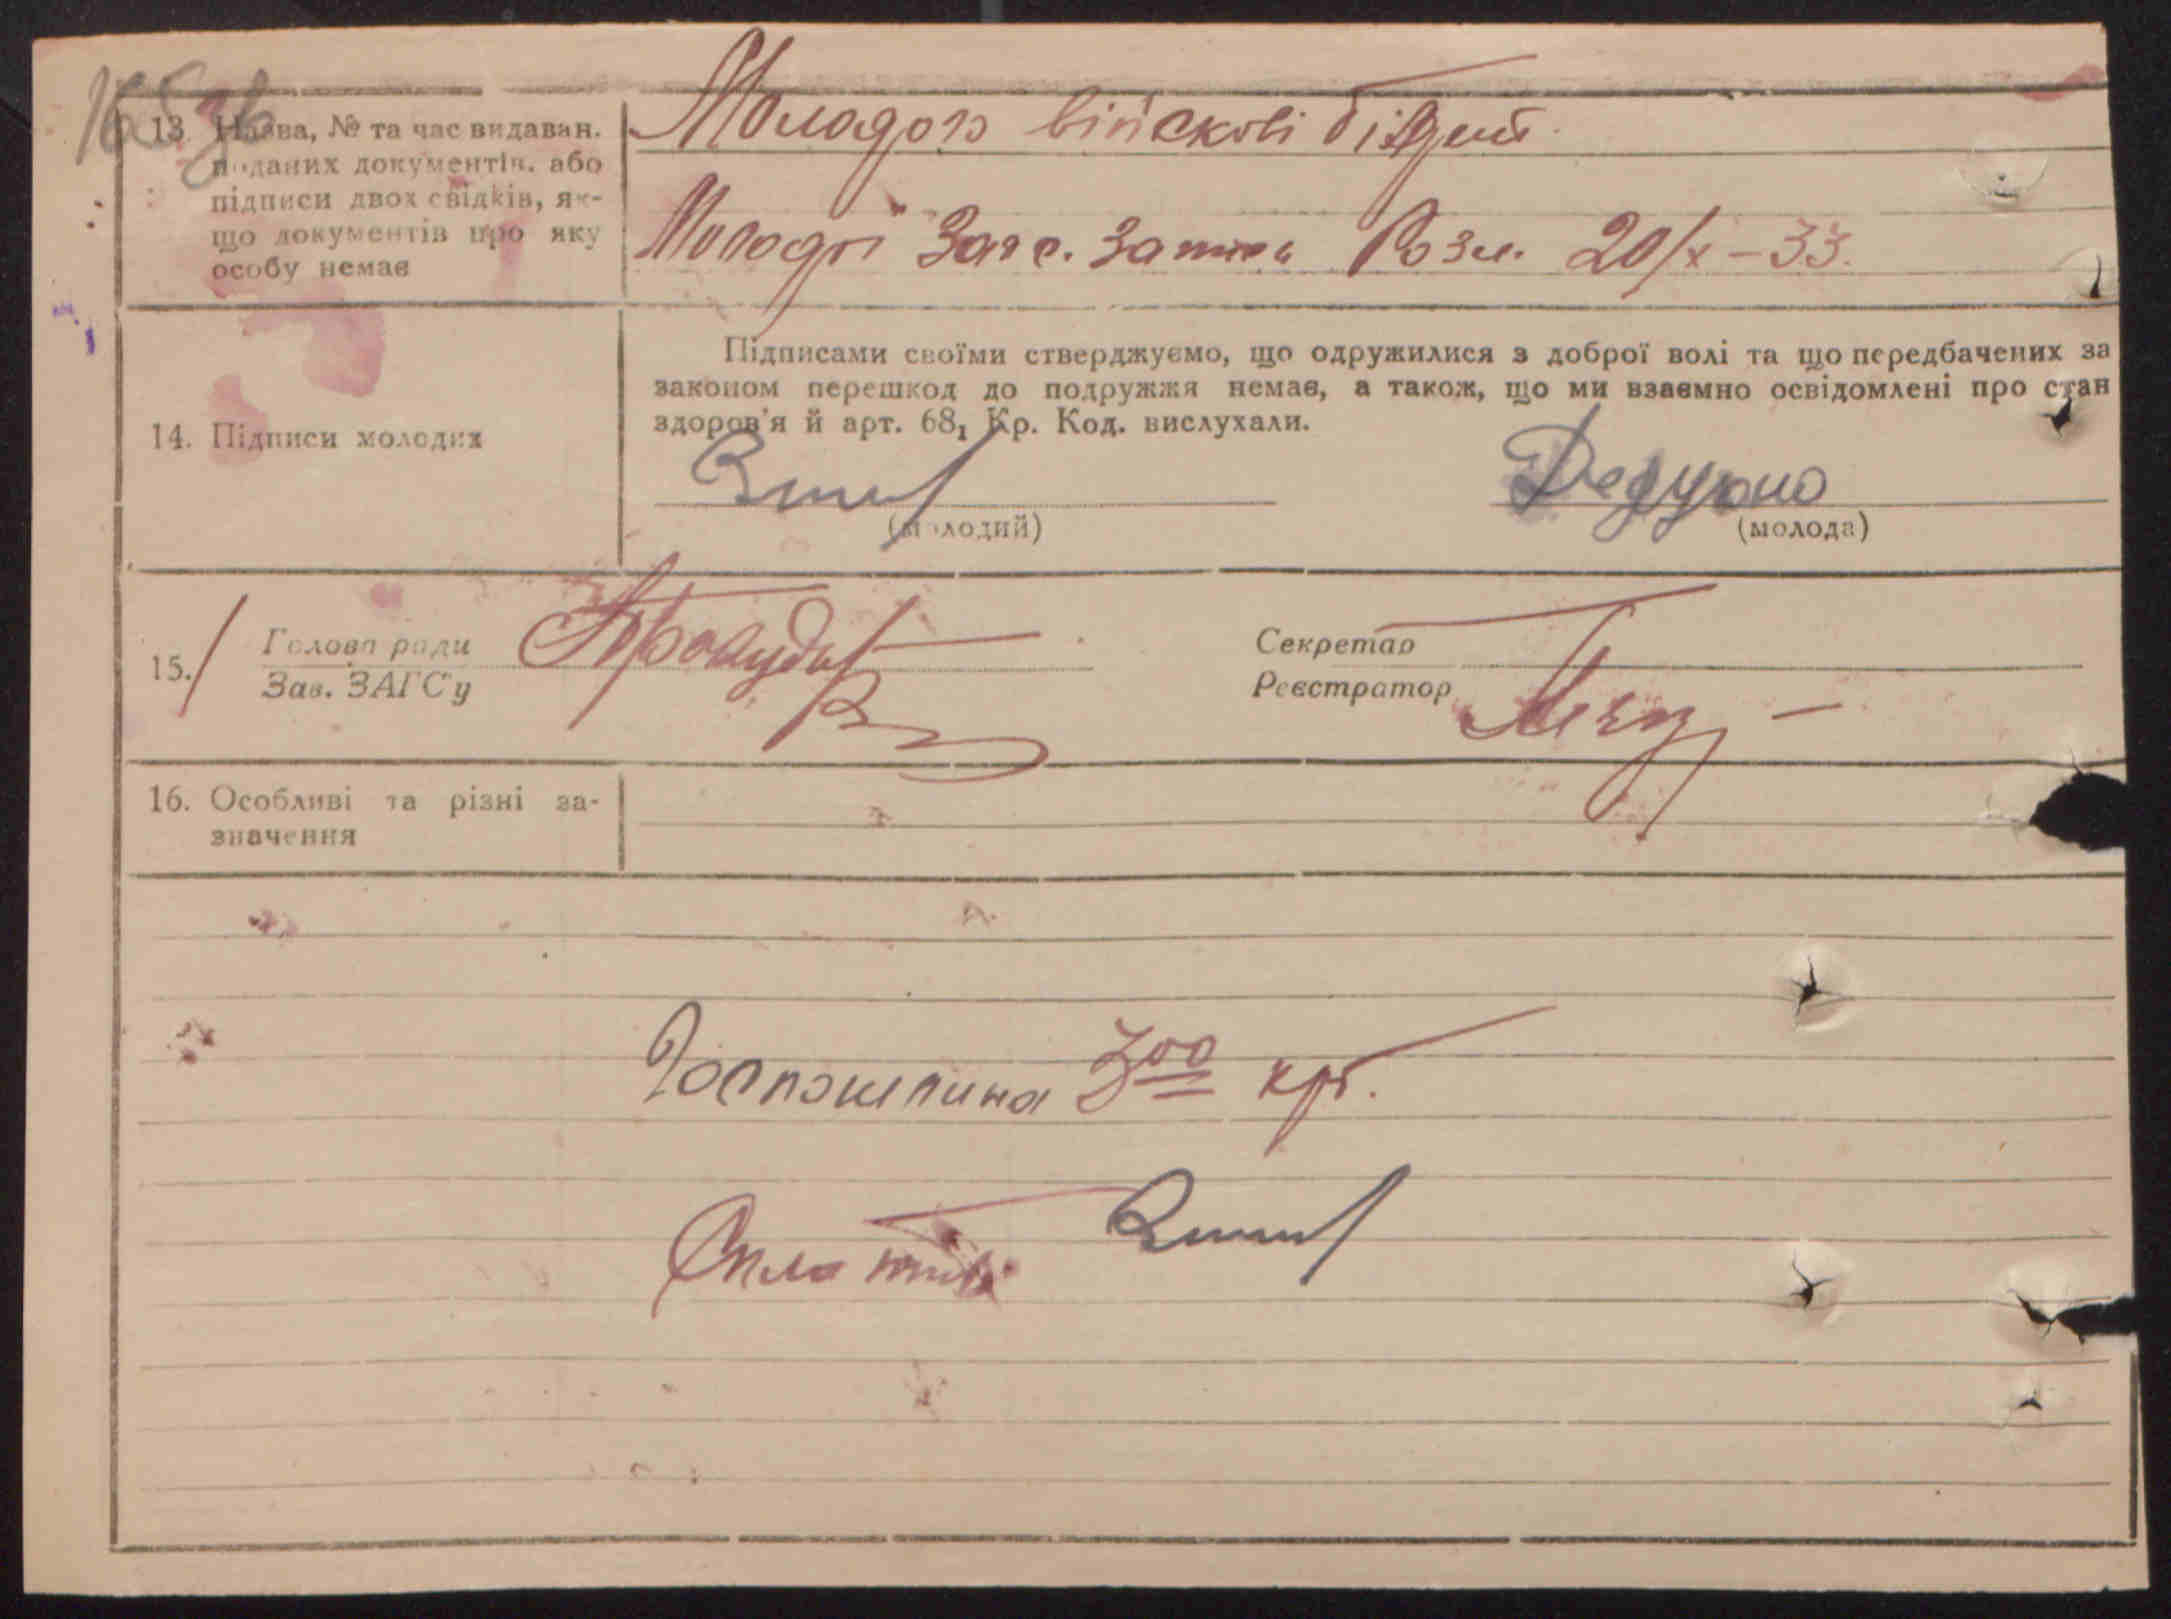 13. Назва, № та час видаван.
поданих документів. або
підписи двох свідків, як-
що документів про яку
особу немає
Молодого війскові білет
Молодої Загс. запись Розл. 20/X – 33.
14. Підписи молодих
Підписами своїми стверджуємо, що одружилися з доброї волі та що передбачених за
законом перешкод до подружжя немає, а також, що ми взаємно освідомлені про стан
здоров'я й арт. 68₁ Кр. Код. вислухали.
(молодий)
(молода)
15. Голова ради
Зав. ЗАГС'у
Секретар
Реєстратор
16. Особливі та різні за-
значення
Госпошлина 3 00 крб.
Сплатив